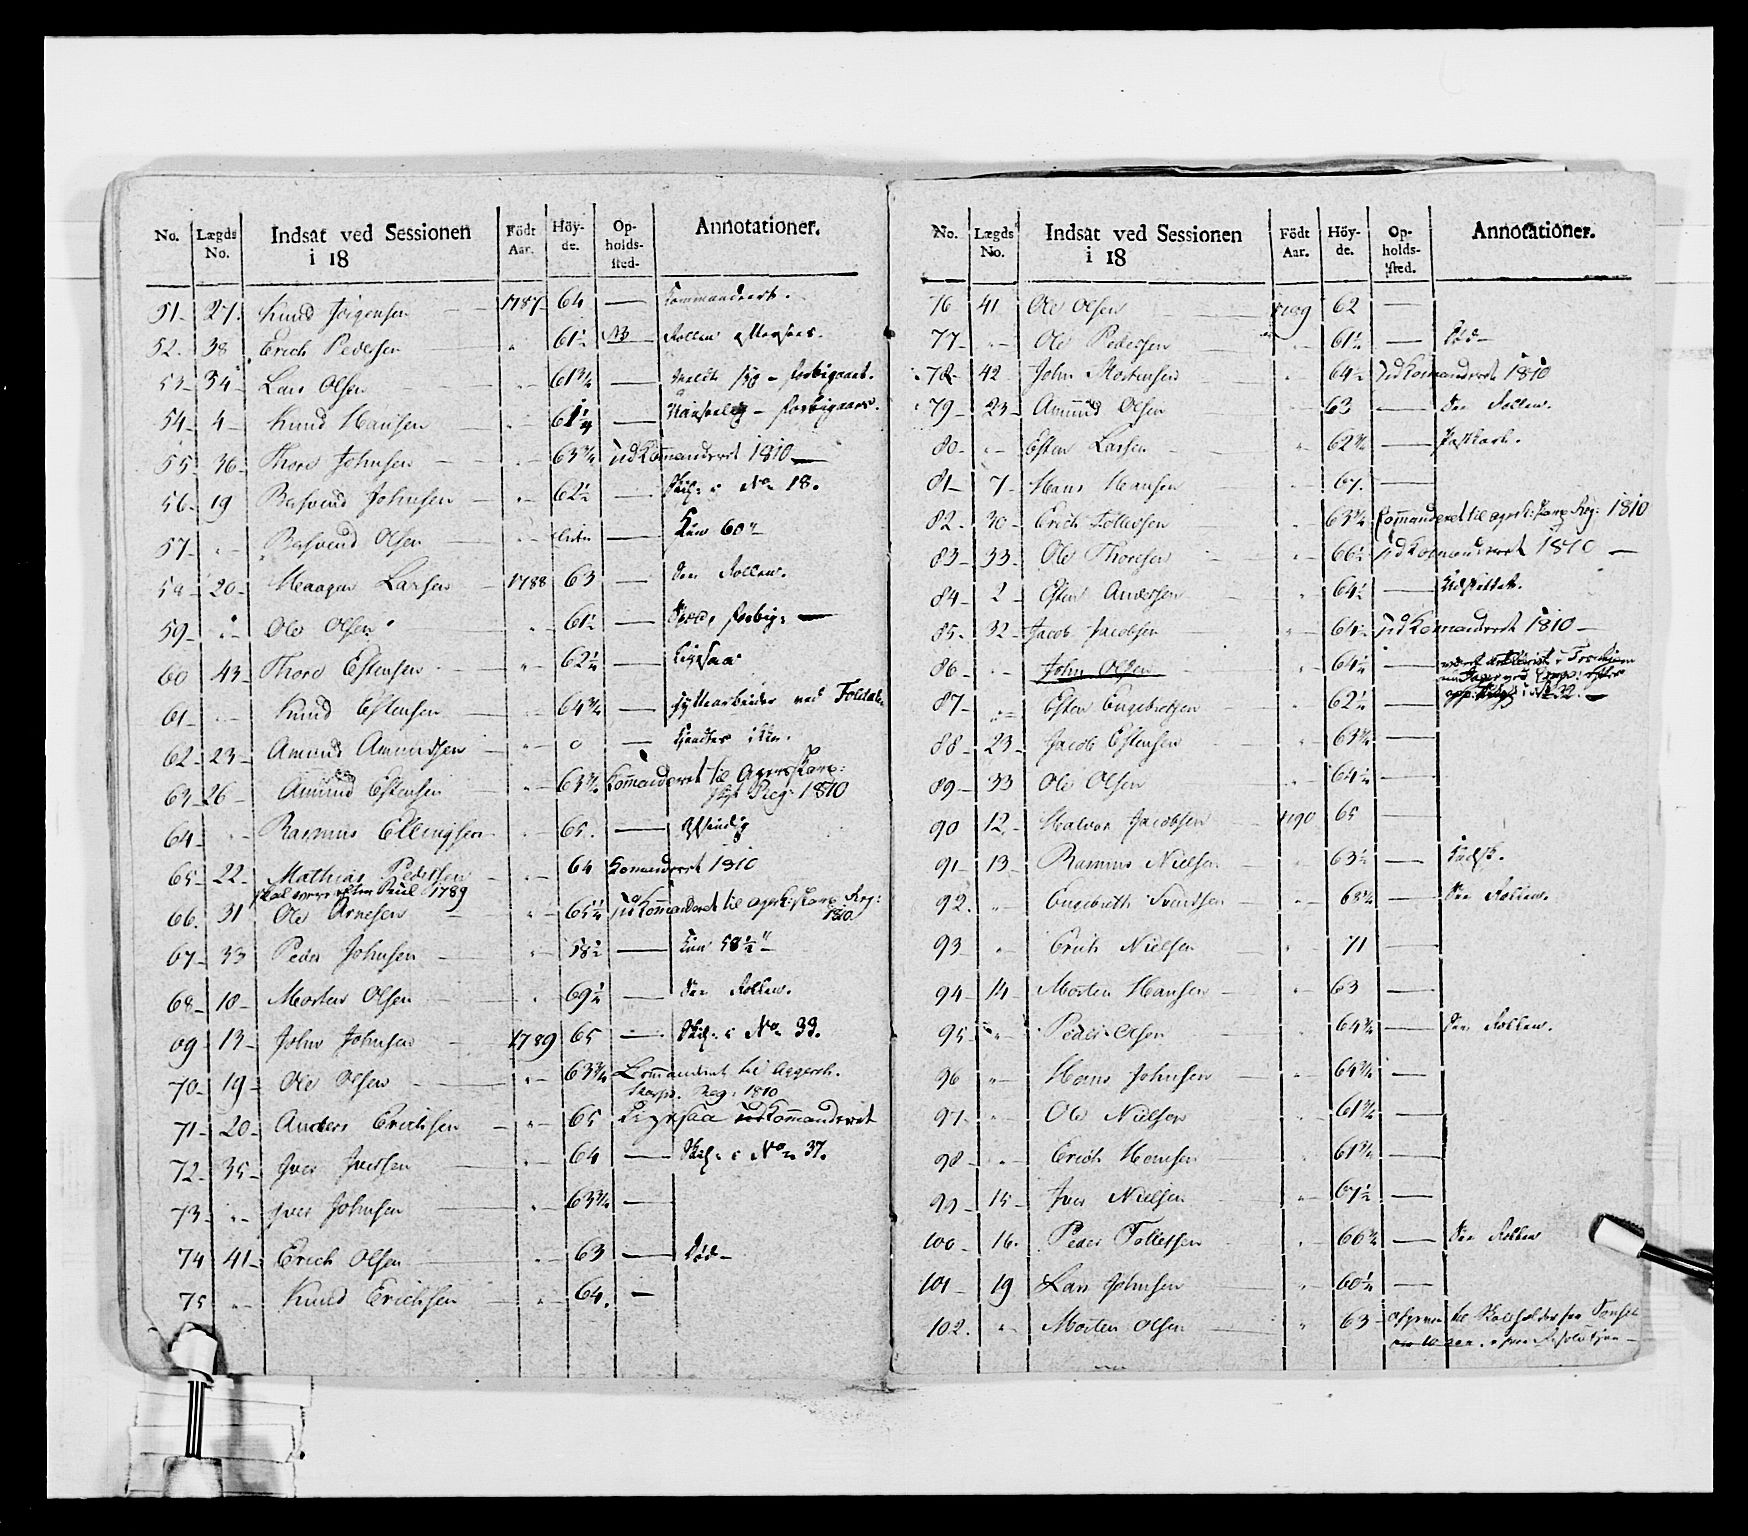 No. Lægds No. Indsat ved Sessionen i 18 Födt Aar. Höyde. Opholdssted. Annotationer.
51 27. Knud Jörgensen 1787 64 Commanderet.
52. 38 Erich Pedersen " 61½ NB Rollen
53 34 Lars Olsen " 61¾ forbigaaet.
54 4 Knud Hansen " 61¼ forbigaaet.
55 36 Thore Johnsen " 63¾ udKommanderet 1810
56 19 Johnsen " 62½ i No 18.
57 " Olsen " Kun 60"
58 20 Haagen Larsen 1788 63 See Rollen.
59 " Ole Olsen " 61½ forbig:
60 43 Thore Estensen " 62¼ Ligesaa
61 " Knud Estensen " 64¾ Hyttearbeider ved Foldalen
62 23 Amund Amundsen " 0 kiendtes ikke.
63 26 Amund Estensen " 63¾ Kommanderet til Agersk: Reg: 1810
64 " Rasmus Ellingsen " 65. Afsindig
65 22 Mathias Pedersen " 64 Commanderet 1810
1789
66. 31 Ole Arnesen " 65½ udKommanderet til agersh: skarp Reg: 1810
67 33 Peder Johnsen " 58½ Kun 58½"
68 10 Morten Olsen " 69½ See Rollen.
69 13 John Johnsen 1789 65 i No 33.
70 19 Ole Olsen " 63¾ Commanderet til Aggersh. skarps. Reg: 1810
71 20 Anders Erichsen " 65 Ligesaa udKommanderet
72 35 Iver Iversen " 64 i No 37.
73 " Iver Johnsen " 63¾
74 41 Erich Olsen " 63 Död
75 " Knud Erichsen " 64.
No. Lægds No. Indsat ved Sessionen i 18 Födt Aar. Höyde. Opholdssted. Annotationer.
76 41 Ole Olsen 1789 62
77 " Ole Pedersen " 61½ Död
78 42 John Mortensen " 64½ udKommanderet 1810
79 23 Amund Olsen " 63 See Rollen.
80 " Esten Larsen " 62¾
81 7 Hans Hansen " 67.
82. 30 Erich Tollefsen " 63¾ Kommanderet til agersh: skarp Reg: 1810
83 33 Ole Thoresen " 66½ udKommanderet 1810
84 2 Esten Andersen " 64½ Udslettet.
85. 32 Jacob Jacobsen " 64½ udKommanderet 1810
86 " John Olsen " 64½
87 " Esten Engebretsen " 62½
88 23 Jacob Estensen " 63¾
89 33 Ole Olsen " 64½
90 12 Halvor Jacobsen 1790 65
91 13 Rasmus Nielsen " 63½
92. " Engebreth Svendsen " 68¾ See Rollen.
93 " Erich Nielsen " 71
94 14 Morten Hansen " 63
95 " Peder Olsen " 64¾ See Rollen.
96 " Hans Johnsen " 64¾
97 " Ole Nielsen " 61¾
98 " Erich Hansen " 61¾
99 15 Iver Nielsen " 67½
100 16. Peder Tollefsen " 66¾ See Rollen
101 19 Lars Johnsen " 60½
102. " Morten Olsen " 63 til